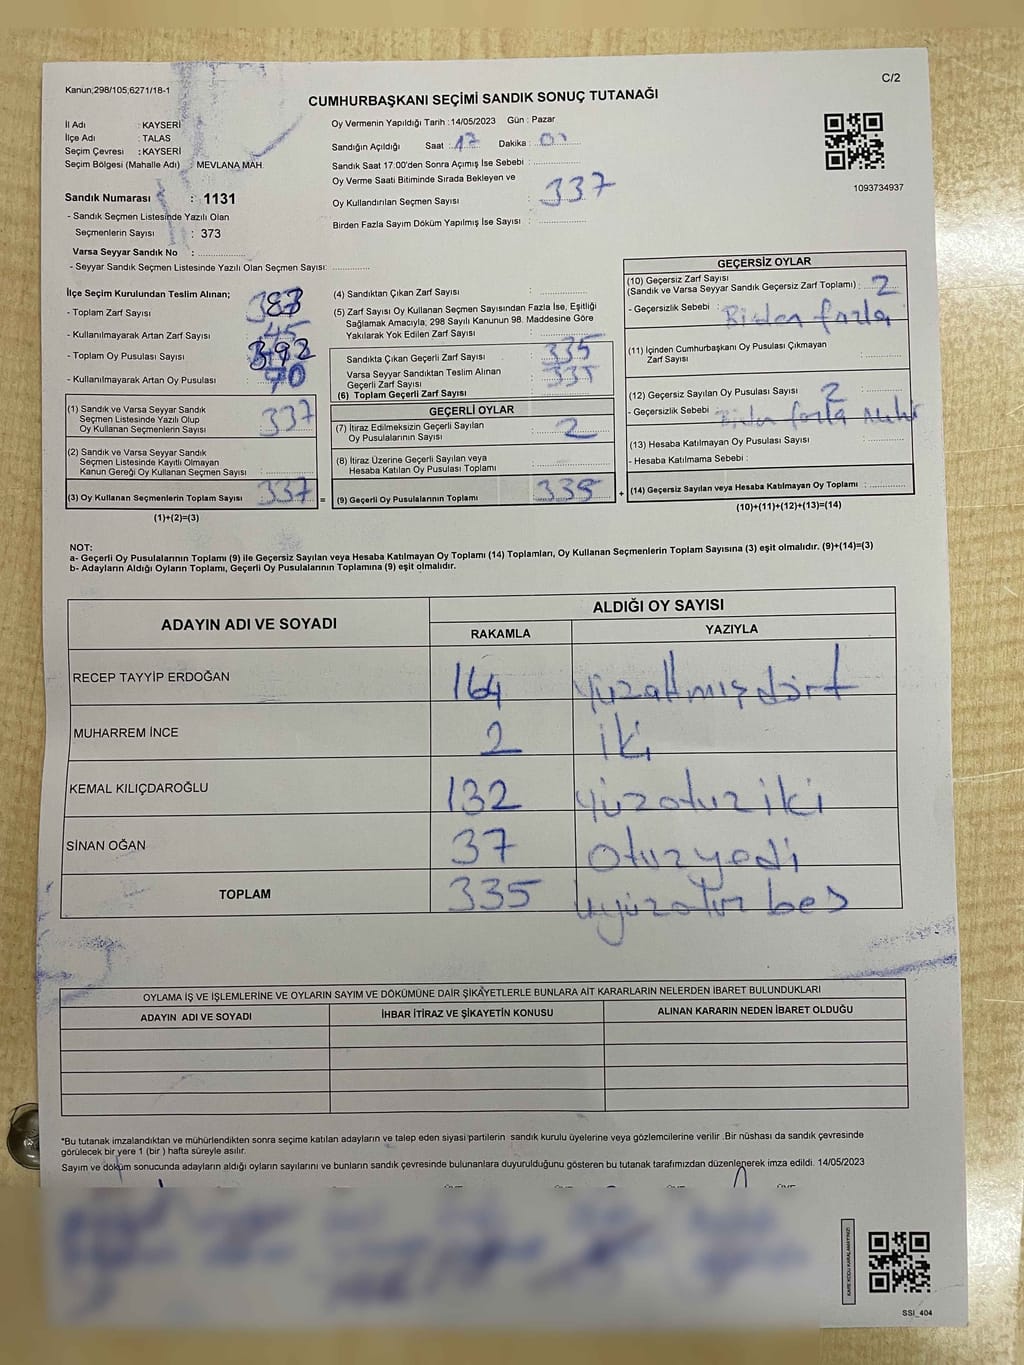 Kanun;298/105,6271/18-1
C/2
CUMHURBAŞKANI SEÇİMİ SANDIK SONUÇ TUTANAĞI
İl Adı : KAYSERİ
İlçe Adı : TALAS
Seçim Çevresi : KAYSERİ
Seçim Bölgesi (Mahalle Adı) : MEVLANA MAH.
Oy Vermenin Yapıldığı Tarih :14/05/2023 Gün : Pazar
Sandığın Açıldığı Saat : 17 Dakika :
Sandık Saat 17:00'den Sonra Açımış İse Sebebi :
Oy Verme Saati Bitiminde Sırada Bekleyen ve
Oy Kullandırılan Seçmen Sayısı : 337
Birden Fazla Sayım Döküm Yapılmış İse Sayısı :
1093734937
Sandık Numarası : 1131
- Sandık Seçmen Listesinde Yazılı Olan
Seçmenlerin Sayısı : 373
Varsa Seyyar Sandık No :
- Seyyar Sandık Seçmen Listesinde Yazılı Olan Seçmen Sayısı:
İlçe Seçim Kurulundan Teslim Alınan;
- Toplam Zarf Sayısı :
- Kullanılmayarak Artan Zarf Sayısı : 45
- Toplam Oy Pusulası Sayısı :
- Kullanılmayarak Artan Oy Pusulası : 70
(1) Sandık ve Varsa Seyyar Sandık
Seçmen Listesinde Yazılı Olup
Oy Kullanan Seçmenlerin Sayısı : 337
(2) Sandık ve Varsa Seyyar Sandık
Seçmen Listesinde Kayıtlı Olmayan
Kanun Gereği Oy Kullanan Seçmen Sayısı :
(3) Oy Kullanan Seçmenlerin Toplam Sayısı : 337 =
(1)+(2)=(3)
(4) Sandıktan Çıkan Zarf Sayısı :
(5) Zarf Sayısı Oy Kullanan Seçmen Sayısından Fazla İse, Eşitliği
Sağlamak Amacıyla, 298 Sayılı Kanunun 98. Maddesine Göre
Yakılarak Yok Edilen Zarf Sayısı :
Sandıkta Çıkan Geçerli Zarf Sayısı : 335
Varsa Seyyar Sandıktan Teslim Alınan
Geçerli Zarf Sayısı : 335
(6) Toplam Geçerli Zarf Sayısı
GEÇERLİ OYLAR
(7) İtiraz Edilmeksizin Geçerli Sayılan
Oy Pusulalarının Sayısı : 2
(8) İtiraz Üzerine Geçerli Sayılan veya
Hesaba Katılan Oy Pusulası Toplamı :
(9) Geçerli Oy Pusulalarının Toplamı : 335 +
GEÇERSİZ OYLAR
(10) Geçersiz Zarf Sayısı
(Sandık ve Varsa Seyyar Sandık Geçersiz Zarf Toplamı) : 2
- Geçersizlik Sebebi : Birden fazla
(11) İçinden Cumhurbaşkanı Oy Pusulası Çıkmayan
Zarf Sayısı :
(12) Geçersiz Sayılan Oy Pusulası Sayısı : 2
- Geçersizlik Sebebi : Birden fazla Mühür
(13) Hesaba Katılmayan Oy Pusulası Sayısı :
- Hesaba Katılmama Sebebi :
(14) Geçersiz Sayılan veya Hesaba Katılmayan Oy Toplamı :
(10)+(11)+(12)+(13)=(14)
NOT:
a- Geçerli Oy Pusulalarının Toplamı (9) ile Geçersiz Sayılan veya Hesaba Katılmayan Oy Toplamı (14) Toplamları, Oy Kullanan Seçmenlerin Toplam Sayısına (3) eşit olmalıdır. (9)+(14)=(3)
b- Adayların Aldığı Oyların Toplamı, Geçerli Oy Pusulalarının Toplamına (9) eşit olmalıdır.
ADAYIN ADI VE SOYADI
ALDIĞI OY SAYISI
RAKAMLA YAZIYLA
RECEP TAYYİP ERDOĞAN 164 yüzaltmışdört
MUHARREM İNCE 2 iki
KEMAL KILIÇDAROĞLU 132 yüzotuziki
SİNAN OĞAN 37 otuzyedi
TOPLAM 335 üçyüzotuz beş
OYLAMA İŞ VE İŞLEMLERİNE VE OYLARIN SAYIM VE DÖKÜMÜNE DAİR ŞİKAYETLERLE BUNLARA AİT KARARLARIN NELERDEN İBARET BULUNDUKLARI
ADAYIN ADI VE SOYADI İHBAR İTİRAZ VE ŞİKAYETİN KONUSU ALINAN KARARIN NEDEN İBARET OLDUĞU
*Bu tutanak imzalandıktan ve mühürlendikten sonra seçime katılan adayların ve talep eden siyasi partilerin sandık kurulu üyelerine veya gözlemcilerine verilir .Bir nüshası da sandık çevresinde
görülecek bir yere 1 (bir ) hafta süreyle asılır.
Sayım ve döküm sonucunda adayların aldığı oyların sayılarını ve bunların sandık çevresinde bulunanlara duyurulduğunu gösteren bu tutanak tarafımızdan düzenlenerek imza edildi. 14/05/2023
KARE KODU KARALAMAYINIZ!
SSI_404